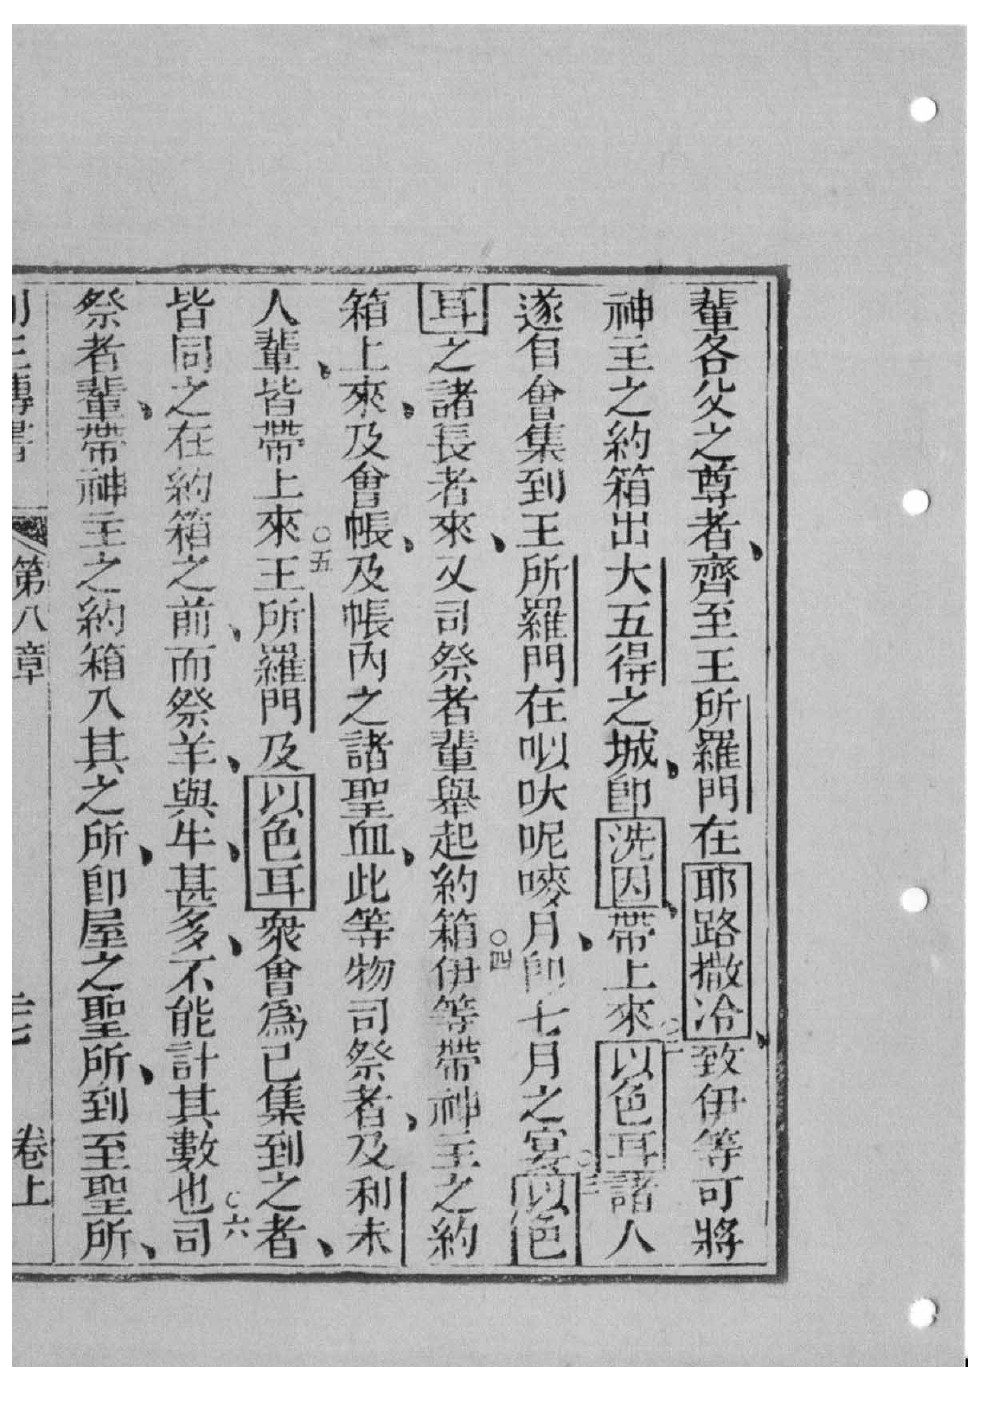 輩各父之尊者、齊至王所羅門在耶路撒冷、致伊等可將
神主之約箱出大五得之城、卽洗因、帶上來○二以色耳諸人
遂自會集到王所羅門在㕥吠呢嘜月、卽七月之宴○三以色
耳之諸長者來、又司祭者輩舉起約箱○四伊等帶神主之約
箱上來、及會帳、及帳內之諸聖皿、此等物司祭者、及利未
人輩、皆帶上來○五王所羅門及以色耳衆會爲已集到之者、
皆同之在約箱之前、而祭羊、與牛、甚多、不能計其數也○六司
祭者輩、帶神主之約箱入其之所、卽屋之聖所、到至聖所、
第八章 卷上